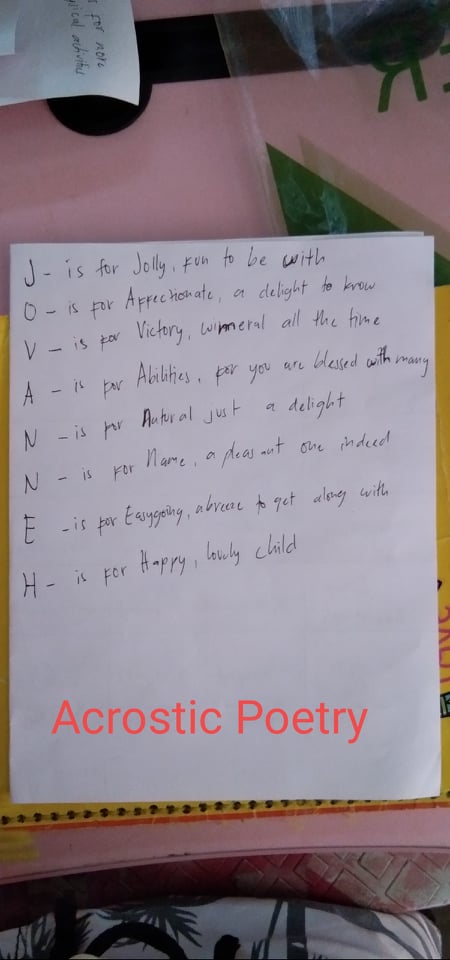 s for more
ysical activities
R
J - is for Jolly, fun to be with
O - is for Affectionate, a delight to know
V - is for Victory, winneral all the time
A - is for Abilities, for you are blessed with many
N - is for Natural just a delight
N - is for Name, a pleasant one indeed
E - is for Easygoing, a breeze to get along with
H - is for Happy, lovely child
Acrostic Poetry